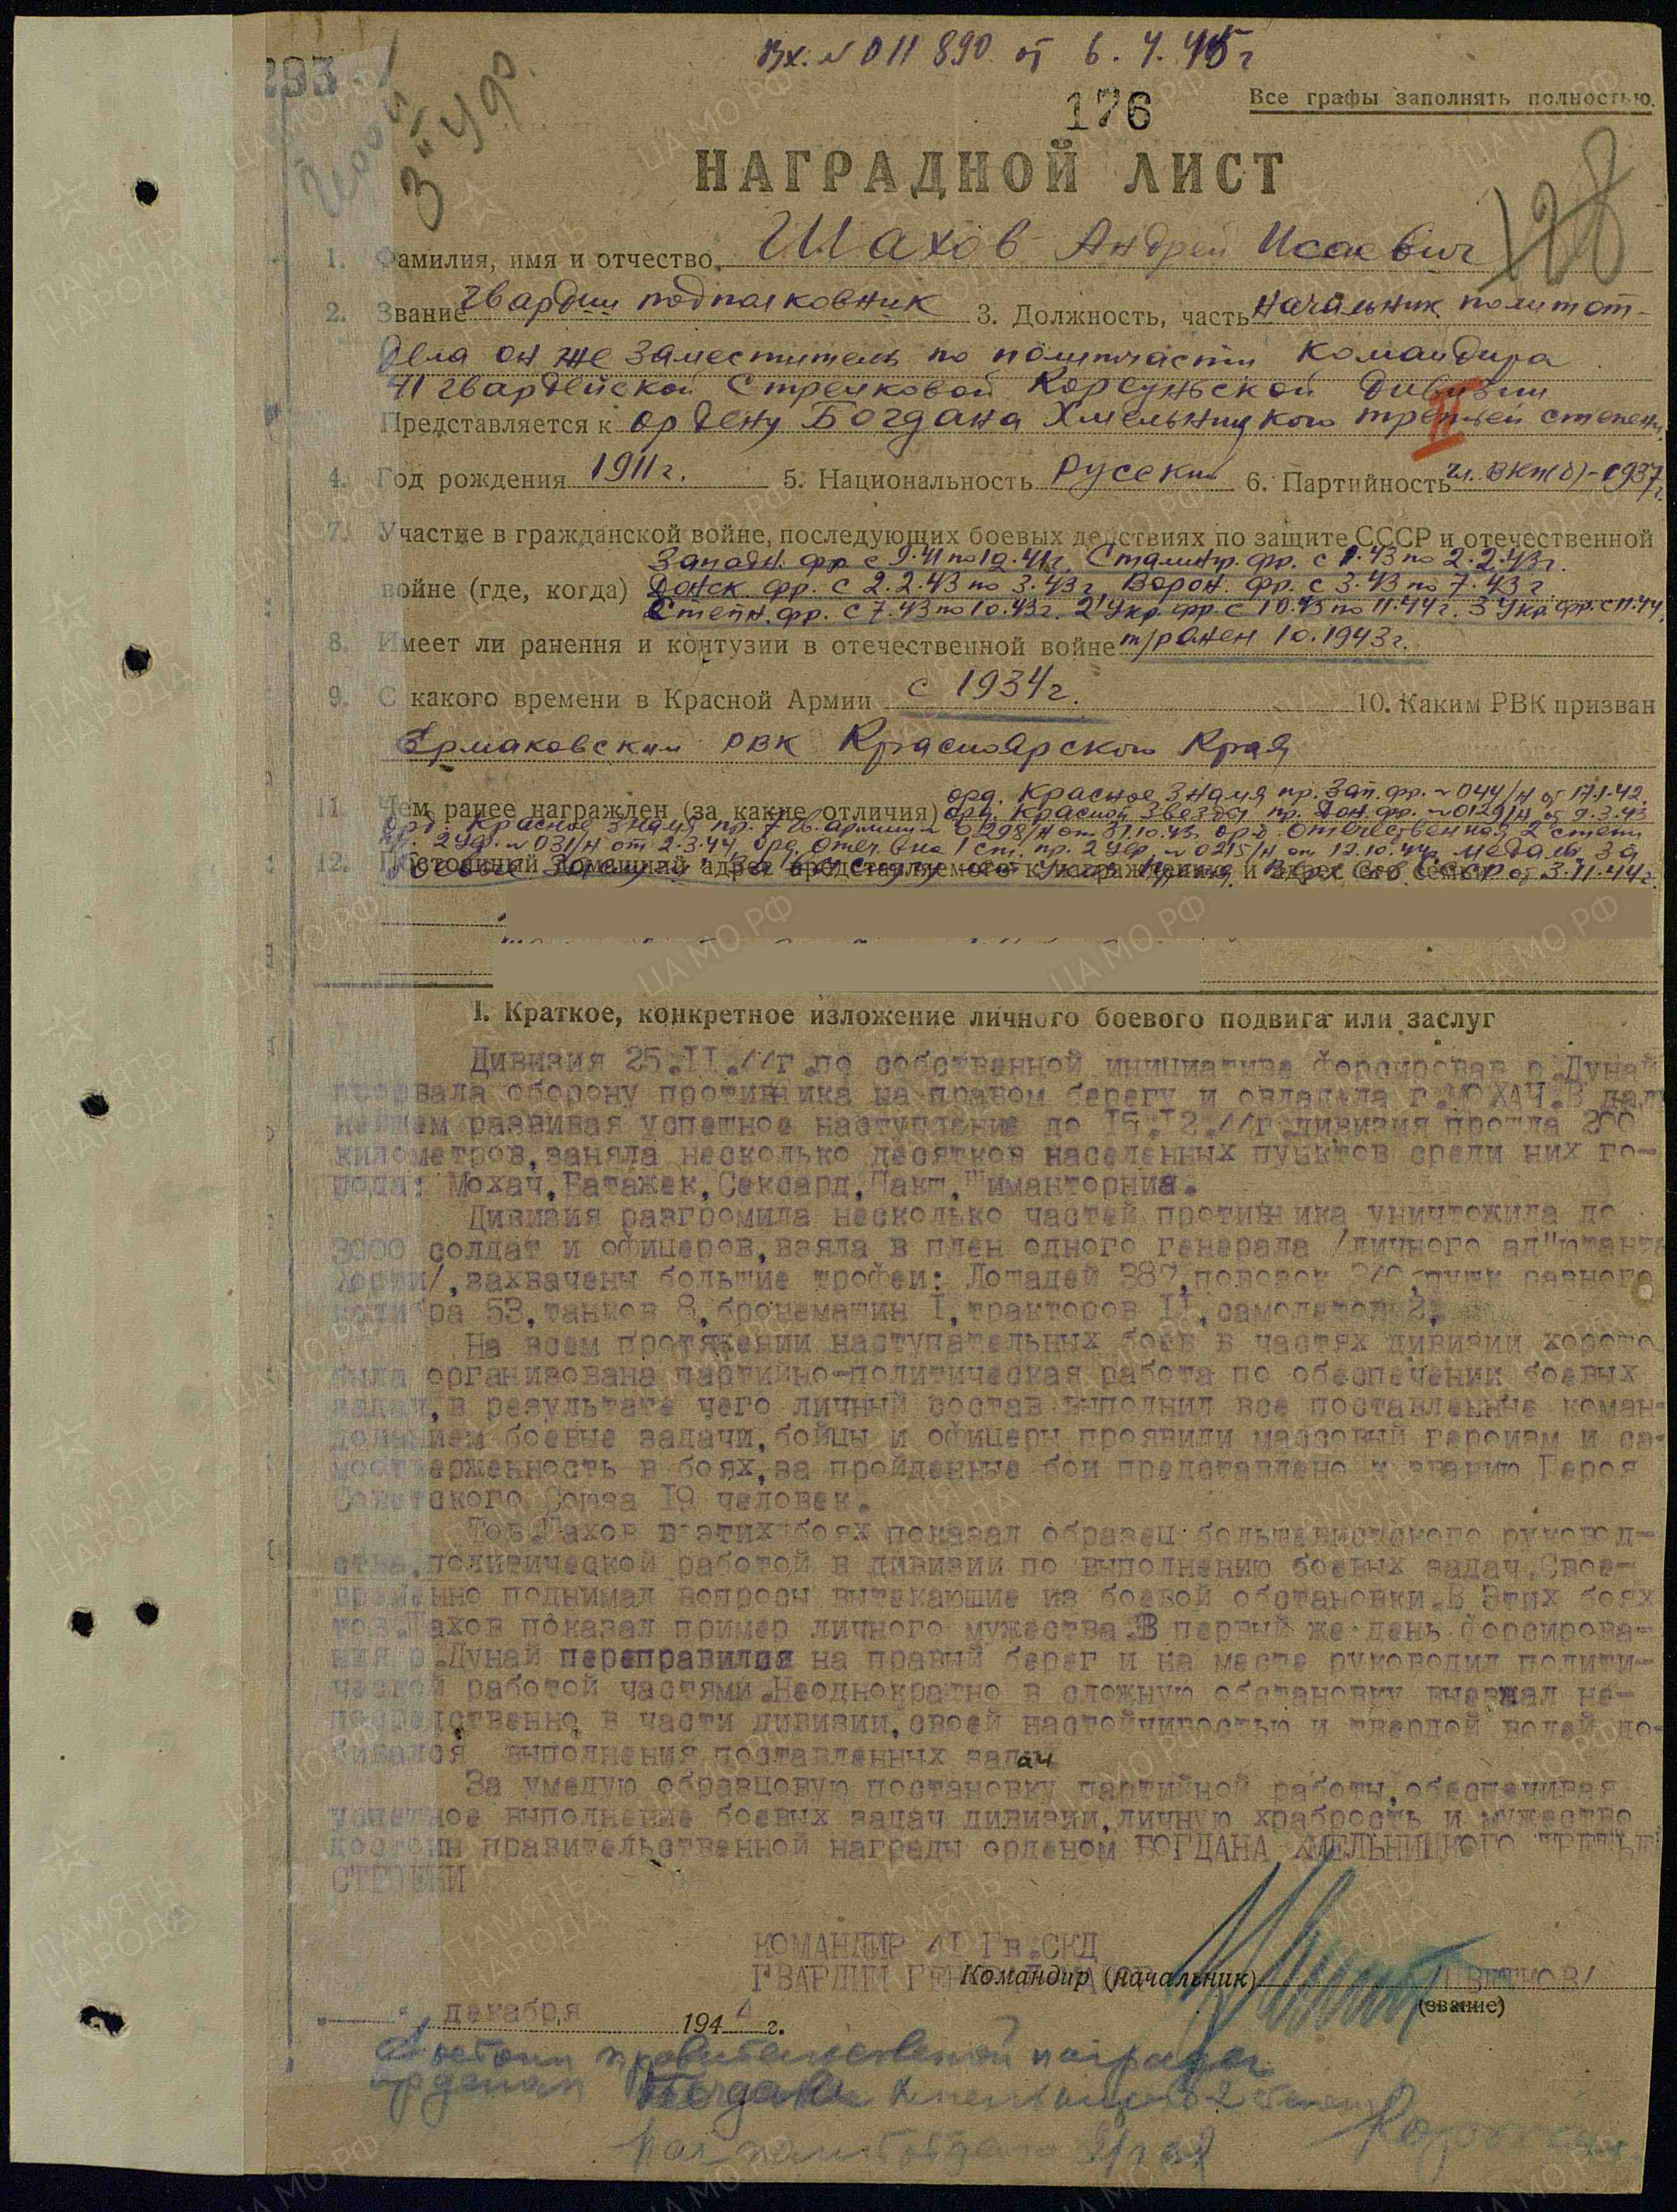 Вх. № 011890 от 6.4.45г
293
3"490.
176
Все графы заполнять полностью.
НАГРАДНОЙ ЛИСТ
128
1. Фамилия, имя и отчество Шахов Андрей Исаевич
2. Звание гвардии подполковник 3. Должность, часть начальник политот-
дела он же заместитель по политчасти командира
41 гвардейской стрелковой Корсуньской дивизии
Представляется к ордену Богдана Хмельницкого третьей степени
II
4. Год рождения 1911г. 5. Национальность русский 6. Партийность чл. ВКП(б)-1937г.
7. Участие в гражданской войне, последующих боевых действиях по защите СССР и отечественной
Западн. фр. с 9.41 по 12.41г. Сталингр. фр. с 1.43 по 2.2.43г.
войне (где, когда) Донск. фр. с 2.2.43 по 3.43г Ворон. фр. с 3.43 по 7.43г
Степн. фр. с 7.43 по 10.43г. 2 Укр фр. с 10.43 по 11.44г. 3 Укр. фр. с 11.44
8. Имеет ли ранения и контузии в отечественной войне т/ранен 10.1943г.
9. С какого времени в Красной Армии с 1934г. 10. Каким РВК призван
Ермаковским РВК Красноярского Края
орд. Красное Знамя пр. Зап. фр. №044/н от 17.1.42.
11. Чем ранее награжден (за какие отличия) орд. Красной Звезды пр. Дон. фр. №0129/н от 9.3.43
орд. Красное Знамя пр. 7 Гв. армии № 0298/н от 31.10.43. орд. Отечественная 2 степ
пр. 2 Уфр. №031/н от 2.3.44, орд. Отеч. вна 1 ст. пр. 2 Уфр. №0215/н от 12.10.44г медаль За
12. Постоянный домашний адрес представляемого к награждению и адрес его семьи
боевые заслуги Верх Сов СССР от 3.11.44г.
1. Краткое, конкретное изложение личного боевого подвига или заслуг
Дивизия 25.II.44г.по собственной инициативе форсировав р.Дунай
прорвала оборону противника на правом берегу и овладела г.МОХАЧ.В даль
нейшем развивая успешное наступление до 15.12.44г.дивизия прошла 200
километров,заняла несколько десятков населенных пунктов среди них го-
рода: Мохач,Батажек,Сексард,Пакш,Шиманторниа.
Дивизия разгромила несколько частей противника уничтожила до
3000 солдат и офицеров,взяла в плен одного генерала /личного ад"ютанта
Хорти/,захвачены большие трофеи: Лошадей 387,повозок 240,пушк разного
калибра 53,танков 8,бронемашин I,тракторов II,самолетов 2.
На всем протяжении наступательных боев в частях дивизии хорошо
была организована партийно-политическая работа по обеспечении боевых
задач,в результате чего личный состав выполнил все поставленные коман-
дованием боевые задачи,бойцы и офицеры проявили массовый героизм и са-
моотверженность в боях,за пройденные бои представлено к званию Героя
Советского Союза 19 человек.
Тов.Шахов в этих боях показал образец большевистского руковод-
ства,политической работой в дивизии по выполнению боевых задач.Свое-
временно поднимал вопросы вытекающие из боевой обстановки.В Этих боях
тов.Шахов показал пример личного мужества.В первый же день форсирова-
ния р.Дунай переправился на правый берег и на месте руководил полити-
ческой работой частями.Неоднократно в сложную обстановку выезжал не-
посредственно в части дивизии,своей настойчивостью и твердой волей до-
бивался выполнения поставленных задач
За умелую образцовую постановку партийной работы,обеспечивая
успешное выполнение боевых задач дивизии,личную храбрость и мужество
достоин правительственной награды орденом БОГДАНА ХМЕЛЬНИЦКОГО ТРЕТЬЕЙ
СТЕПЕНИ
КОМАНДИР 41 Гв.СКД
ГВАРДИИ ГЕН Командир (начальник) ЦВЕТКОВ/
(звание)
" декабря 1944 г.
Достоин правительственной награды
орденом Богдана Хмельницкого 2 степени